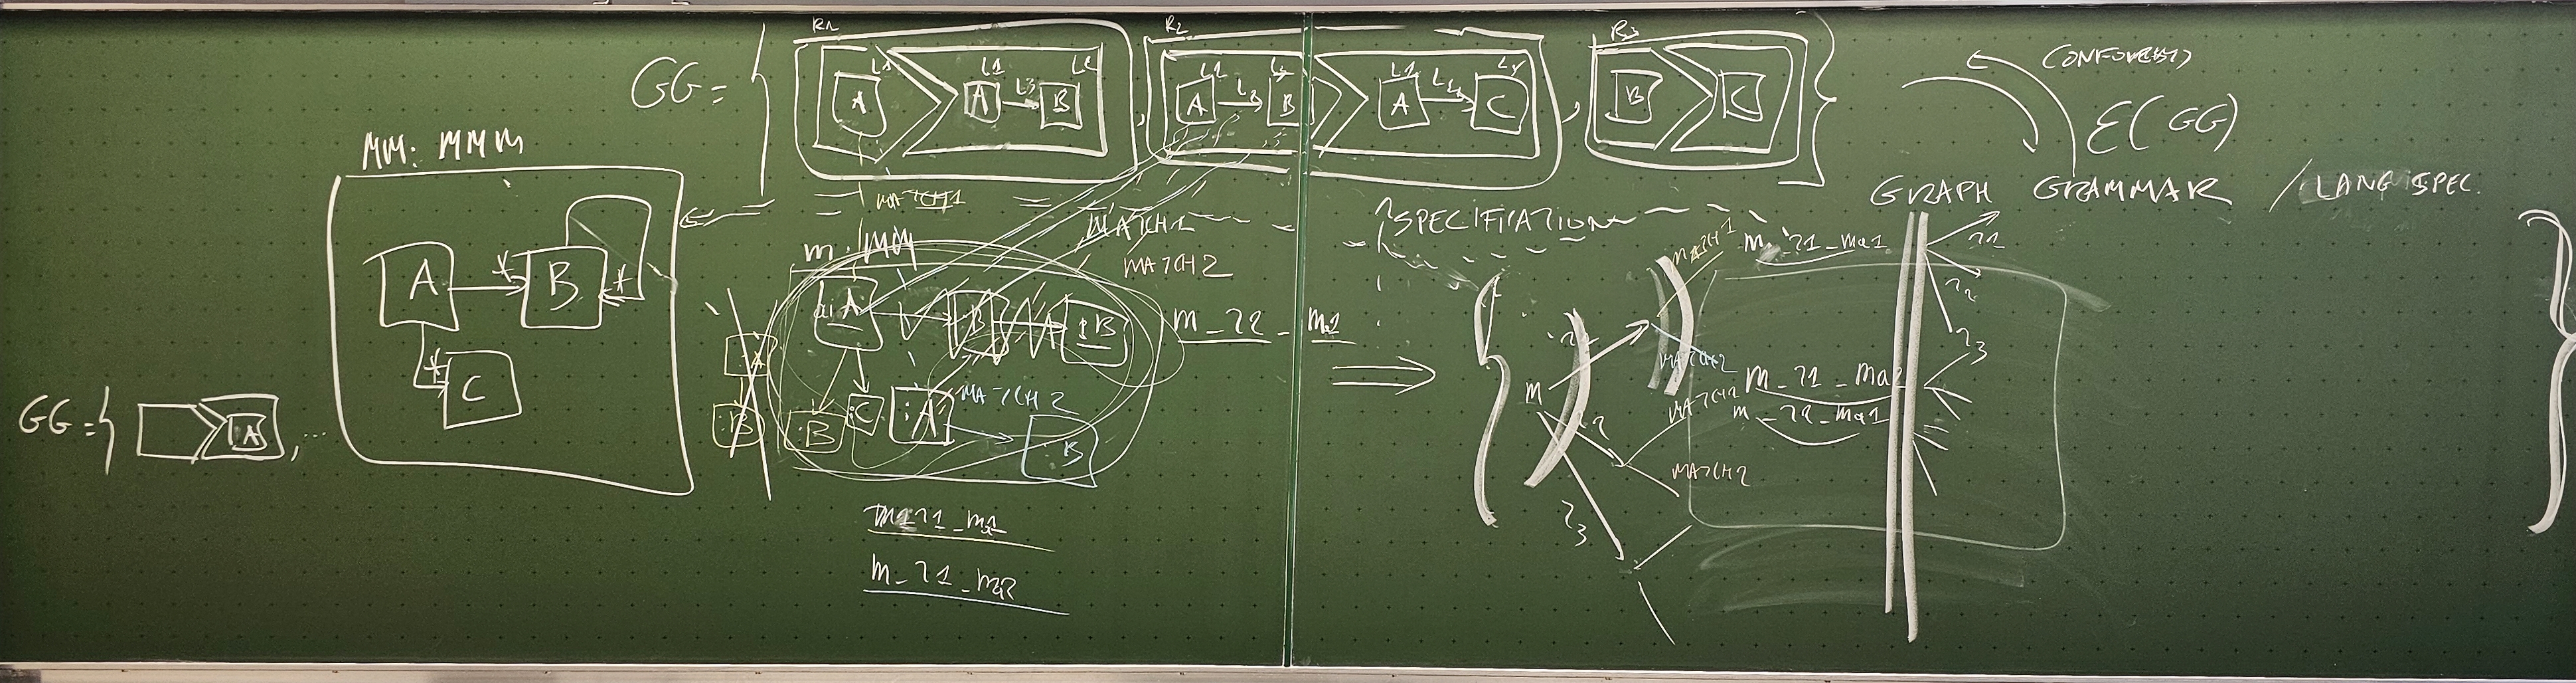 GG = {
R1
A
L1
A
L1
L3
B
L2
,
R2
A
L1
L3
B
A
L1
C
,
R3
B
C
}
(CONFORMS)
E(GG)
GRAPH GRAMMAR / LANG SPEC.
MM: MMM
A
*
B
*
*
C
GG = {
A
, ...
MATCH1
MATCH1
MATCH2
m: MM
A
:B
:B
:A
:B
:B
:C
:A
MATCH2
:B
m_r2_m1
m_r1_m2
SPECIFICATION
⇒
{
m
r2
r3
MATCH1
MATCH2
m_r1_ma1
MATCH2
MATCH2
m_r1_ma2
m_r2_ma1
r1
r2
r3
}